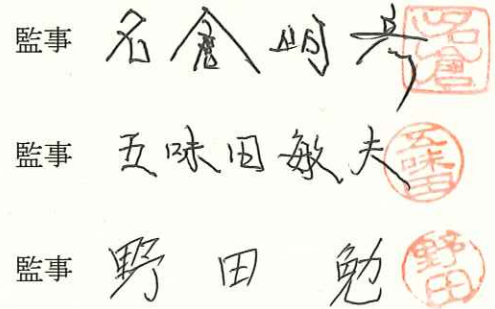 監事 名倉明彦 名倉
監事 五味田敏夫 五味田
監事 野田 勉 野田